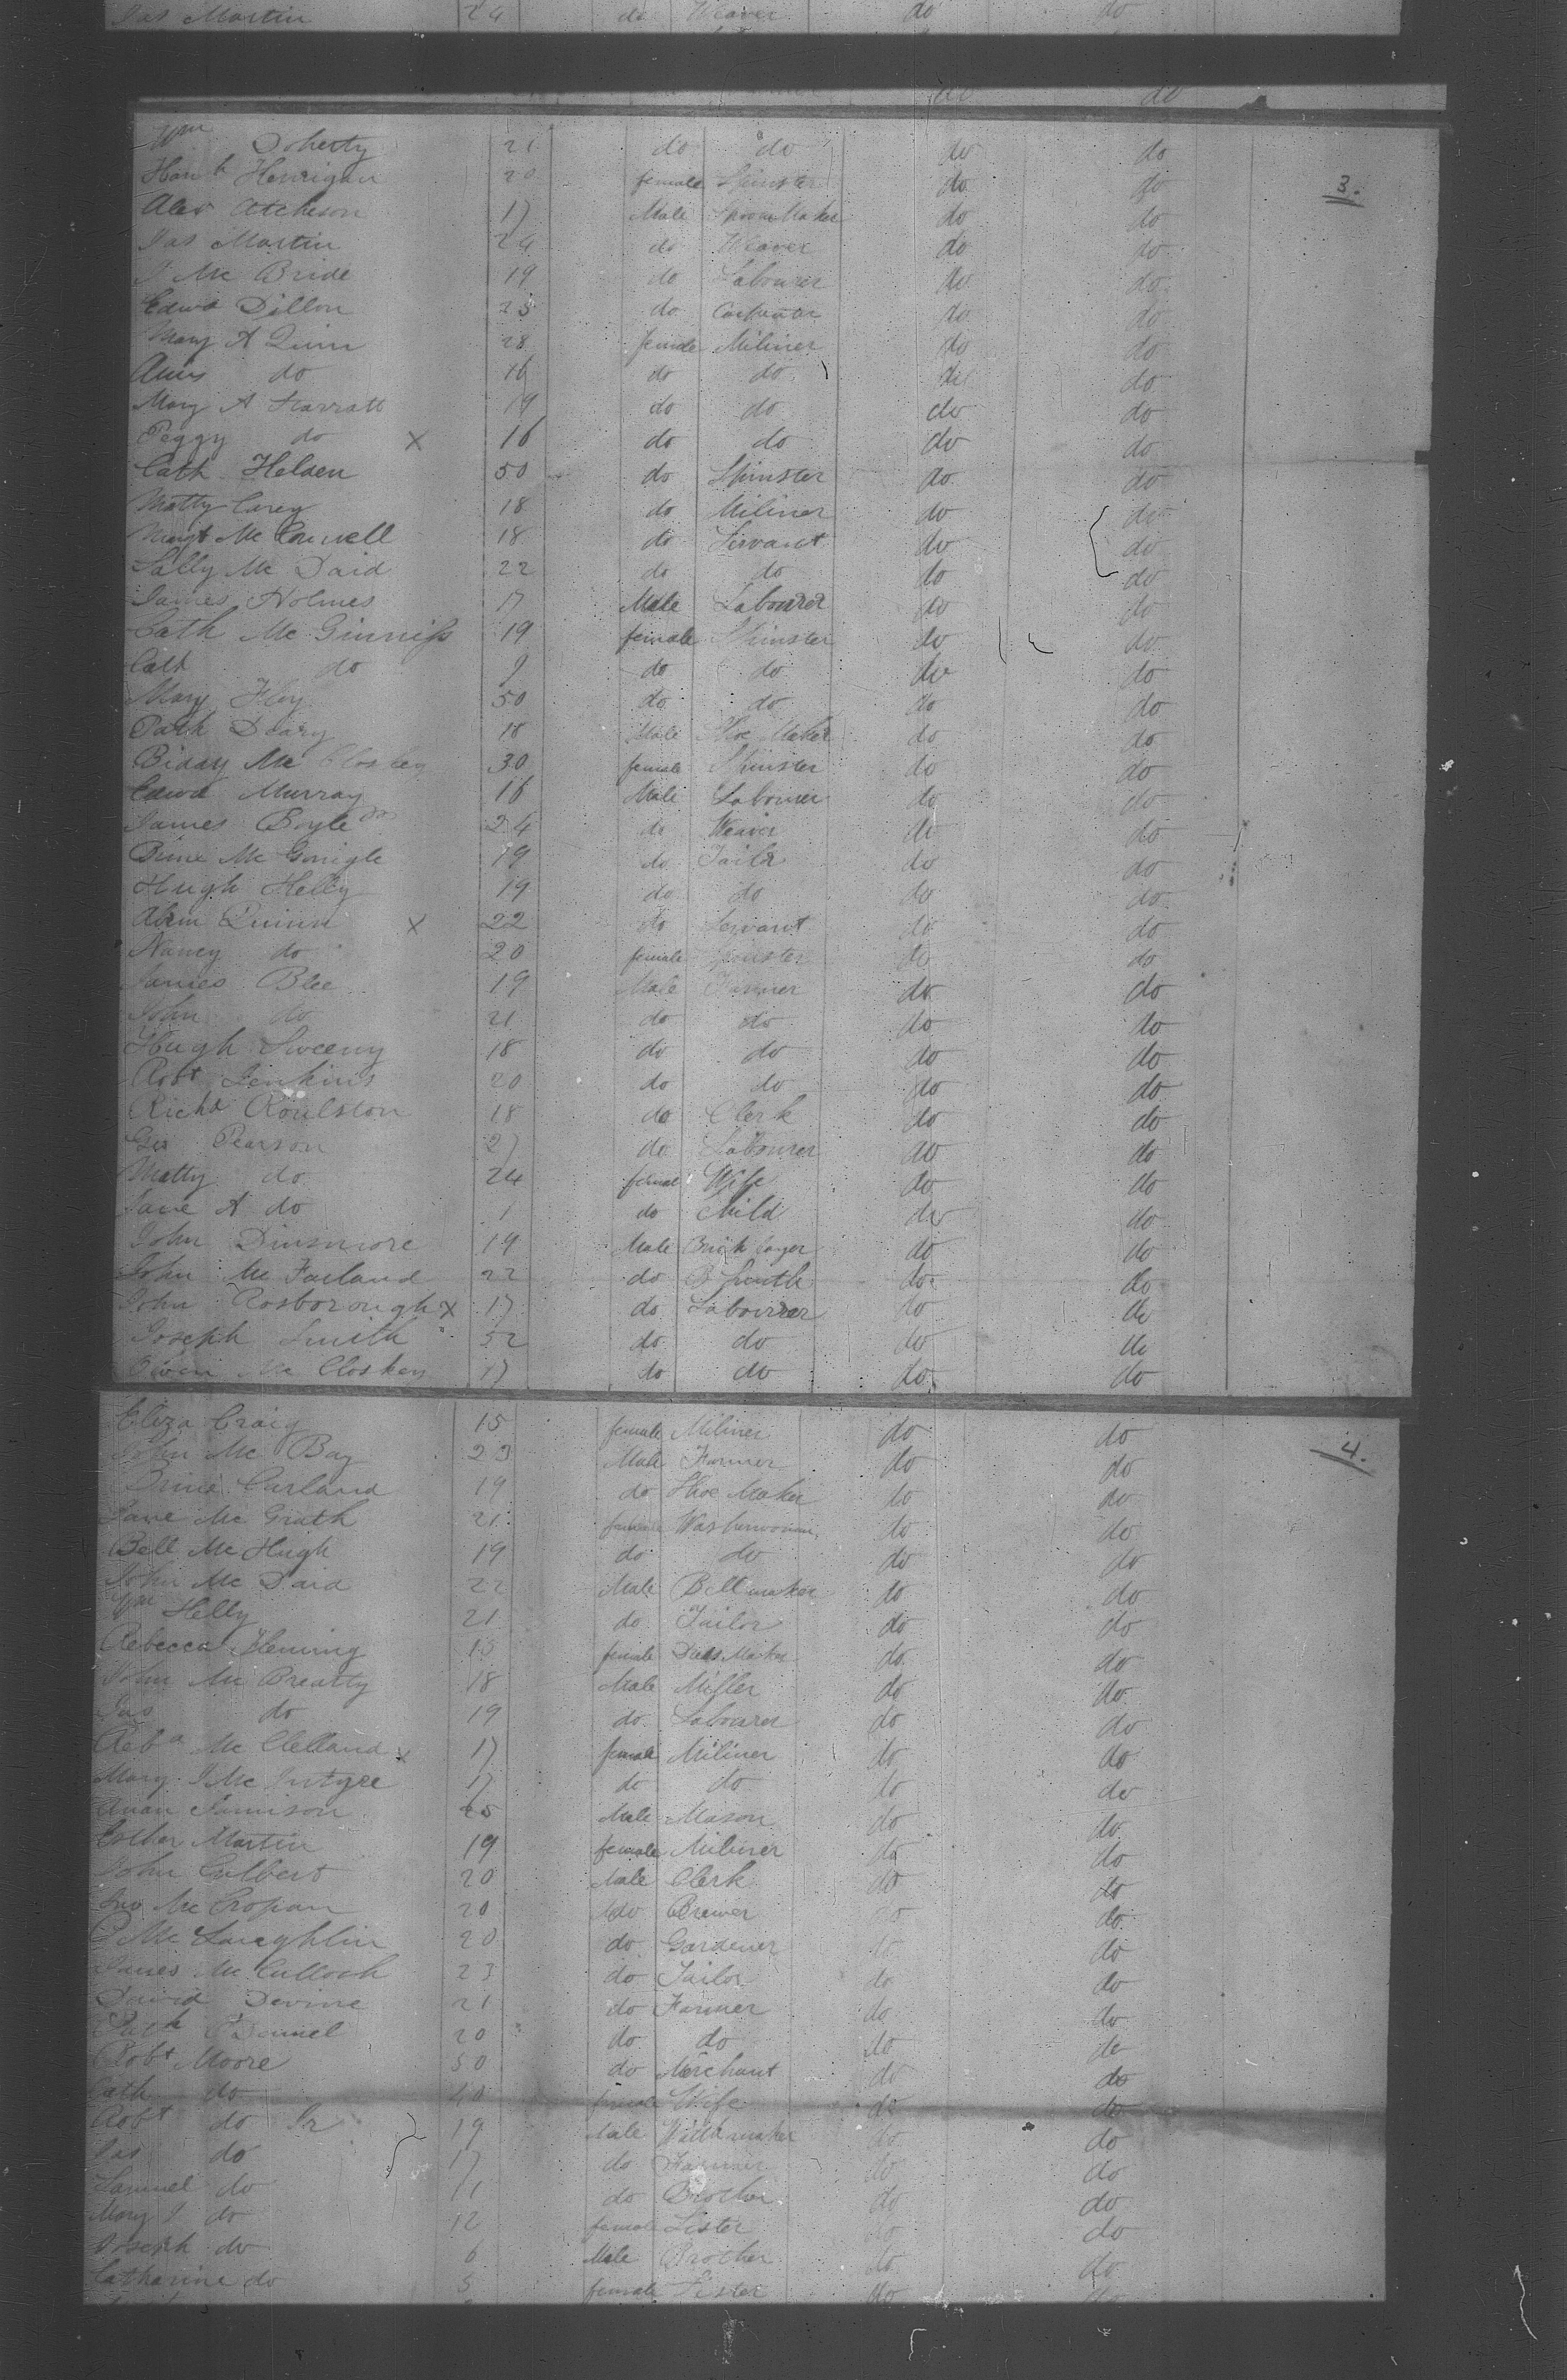 Jas Martin 24 do Weaver do do
do do
Wm Doherty 21 do do do do
Hanh Henrigan 20 female Spinster do do
3.
Alex Atcheson 17 Male Spoon Maker do do
Jas Martin 24 do Weaver do do
J Mc Bride 19 do Labourer do do
Edwd Dillon 25 do Carpenter do do
Mary A Quinn 28 female Miliner do do
Ann do 16 do do do do
Mary A Starratt 19 do do do do
Peggy do x 16 do do do do
Cath 50 do Spinster do do
Matty Carey 18 do Miliner do do
Margt Mc Conwell 18 do Servant do do
Sally Mc Daid 22 do do do do
James Holmes 17 Male Labourer do do
Cath Mc Ginniss 19 female Spinster do do
Cath do 9 do do do do
Mary 50 do do do do
Patk Deary 18 Male Shoe Maker do do
Biddy Mc Closkey 30 female Spinster do do
Edwd Murray 16 Male Labourer do do
James Boyle 24 do Weaver do do
Brine Mc Gonigle 19 do Tailor do do
Hugh Helly 19 do do do do
Abrm Quinn x 22 do Servant do do
Nancy do 20 female Spinster do do
James Blee 19 Male Farmer do do
John do 21 do do do do
Hugh Sweeny 18 do do do do
Robt Jenkins 20 do do do do
Richd Roulston 18 do Clerk do do
Geo Pearson 27 do Labourer do do
Matty do 24 female Wife do do
Jane A do 1 do Child do do
John Dinsmore 19 Male Brick layer do do
John Mc Farland 22 do B Smith do do
John Rosborough x 17 do Labourer do do
Joseph Smith 52 do do do do
Owen Mc Closkey 17 do do do do
Eliza Craig 15 female Miliner do do
4.
John Mc Bay 23 Male Farmer do do
Brine Carland 19 do Shoe Maker do do
Jane Mc Grath 21 female Washerwoman do do
Bell Mc Hugh 19 do do do do
John Mc Daid 22 Male Beltmaker do do
Wm Helly 21 do Tailor do do
Rebecca Fleming 15 female Dress Maker do do
John Mc Breatty 18 Male Miller do do
Jas do 19 do Labourer do do
Reba Mc Clelland x 17 female Miliner do do
Mary J Mc Intyre 17 do do do do
Jamison Male Mason do do
Esther Martin 19 female Miliner do do
John Culbert 20 Male Clerk do do
Jno Mc Crossan 20 do Brewer do do
P Mc Laughlin 20 do Gardener do do
James Mc Culloch 23 do Tailor do do
David Devine 21 do Farmer do do
Patk O'Donnel 20 do do do do
Robt Moore 50 do Merchant do do
Cath do 40 female Wife do do
Robt do Jr 19 Male Watchmaker do do
Jas do 17 do Farmer do do
Samuel do 11 do Brother do do
Mary J do 12 female Sister do do
Joseph do 6 Male Brother do do
Catharine do 5 female Sister do do